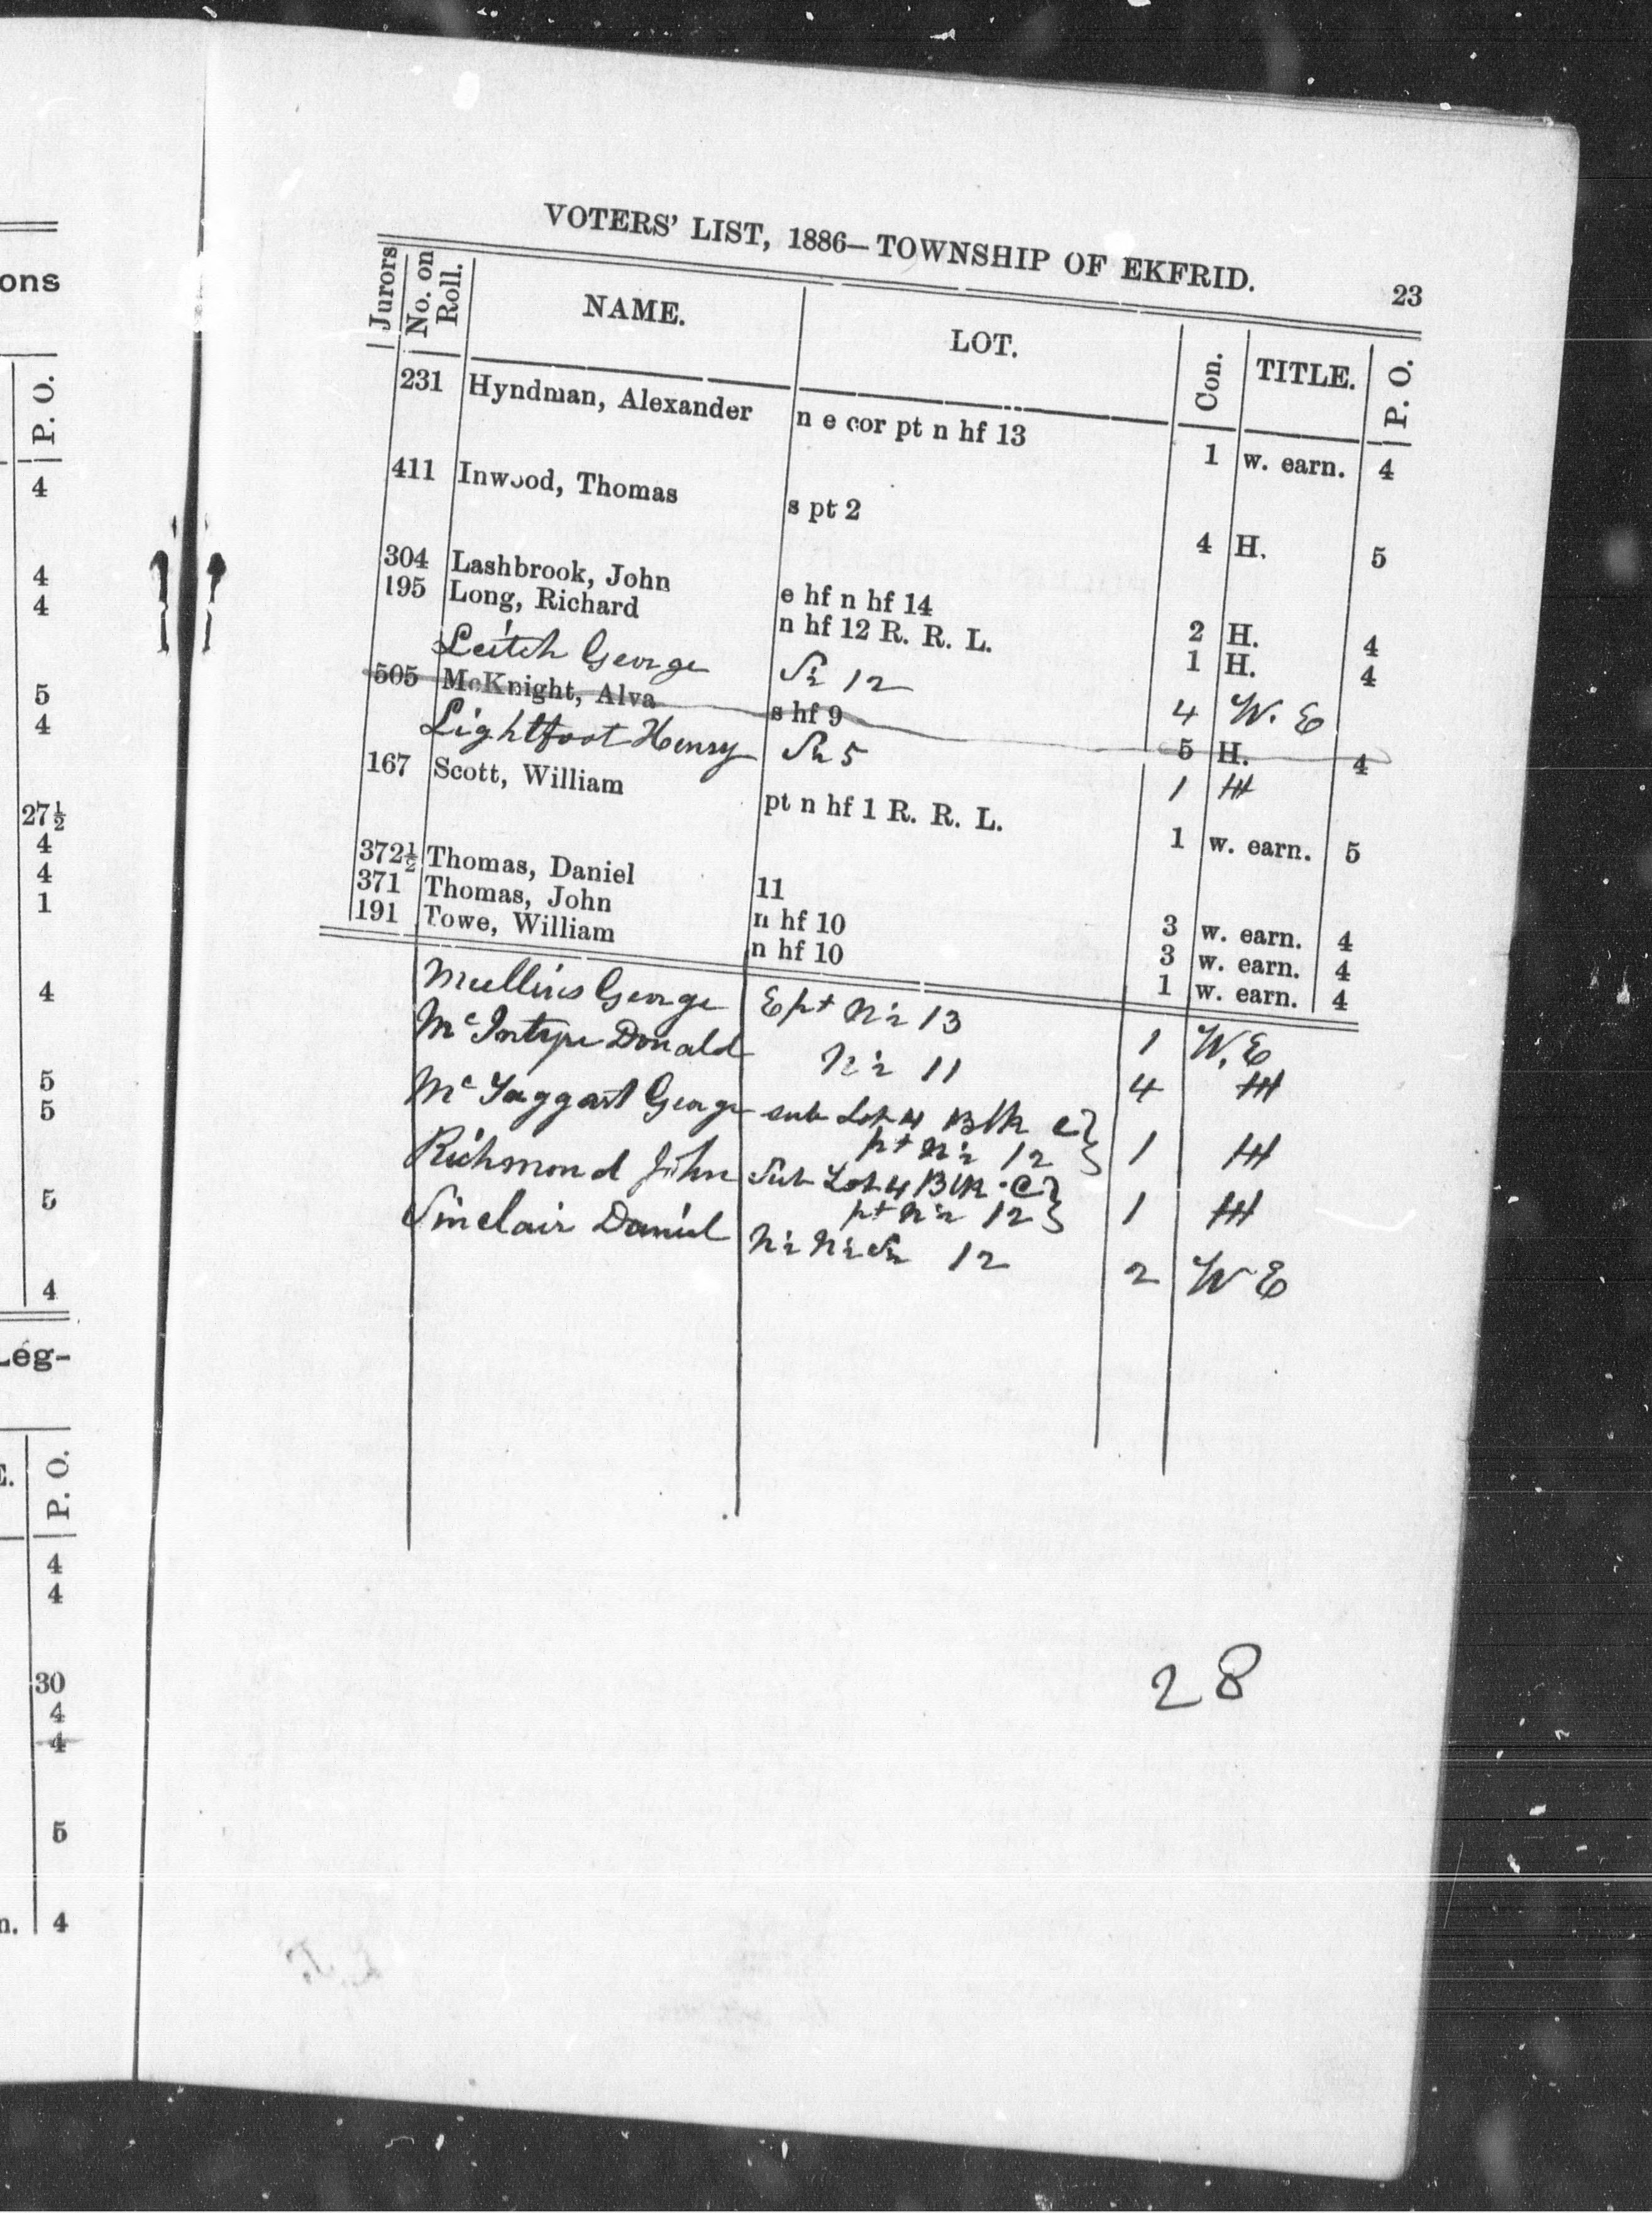 ons
P. O.
4
4
4
5
4
27½
4
4
1
4
5
5
5
4
Lég-
E. P. O.
4
4
30
4
4
5
n. 4
VOTERS' LIST, 1886—TOWNSHIP OF EKFRID. 23
Jurors No. on Roll. NAME. LOT. Con. TITLE. P. O.
231 Hyndman, Alexander n e cor pt n hf 13 1 w. earn. 4
411 Inwood, Thomas s pt 2 4 H. 5
304 Lashbrook, John e hf n hf 14 2 H. 4
195 Long, Richard n hf 12 R. R. L. 1 H. 4
Leitch George S½ 12 4 W. E
505 McKnight, Alva s hf 9 5 H. 4
Lightfoot Henry S½ 5 1 H
167 Scott, William pt n hf 1 R. R. L. 1 w. earn. 5
372½ Thomas, Daniel 11 3 w. earn. 4
371 Thomas, John n hf 10 3 w. earn. 4
191 Towe, William n hf 10 1 w. earn. 4
Mullins George E pt N½ 13 1 W. E
McIntyre Donald N½ 11 4 H
McTaggart George sub Lot 4 Blk C }
pt N½ 12 } 1 H
Richmond John Sub Lot 4 Blk. C }
pt N½ 12 } 1 H
Sinclair Daniel N½ N½ S½ 12 2 W E
28